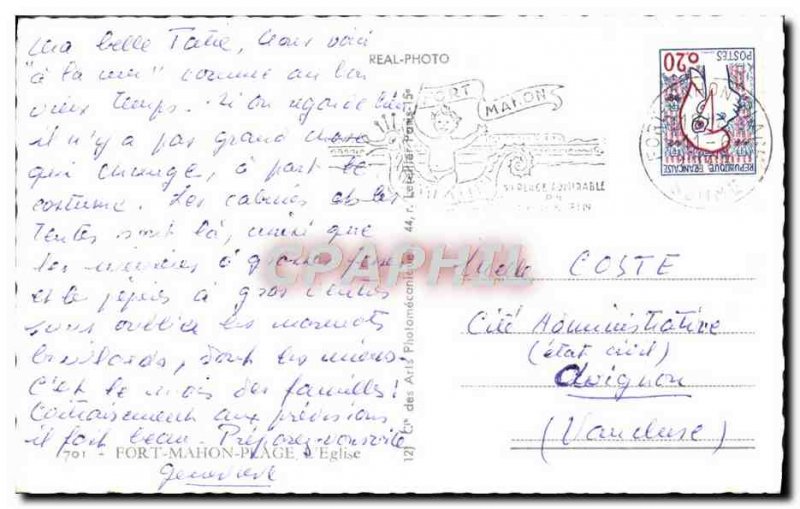 Ma belle Tatie, Nous voici
"à la mer" comme au bon
vieux temps. Si on regarde bien
il n'y a pas grand chose
qui change, à part le
costume. Les cabines et les
tentes sont là, ainsi que
les mémères à grosses fesses
et les pépères à gros ventres
sans oublier les marmots
braillards, dont les miens.
C'est le mois des familles!
Contrairement aux prévisions
il fait beau. Préparez-vous vite
Geneviève
701 - FORT-MAHON-PLAGE, L'Eglise
REAL-PHOTO
12) Cie des Arts Photomécaniques, 44, r. Letellier Paris-15e
FORT MAHON
SA PLAGE ADMIRABLE
FORT-MAHON-PLAGE
SOMME
0,20
POSTES
REPUBLIQUE FRANCAISE
CPAPHIL
Melle COSTE
Cité Administrative
(état civil)
Avignon
(Vaucluse)